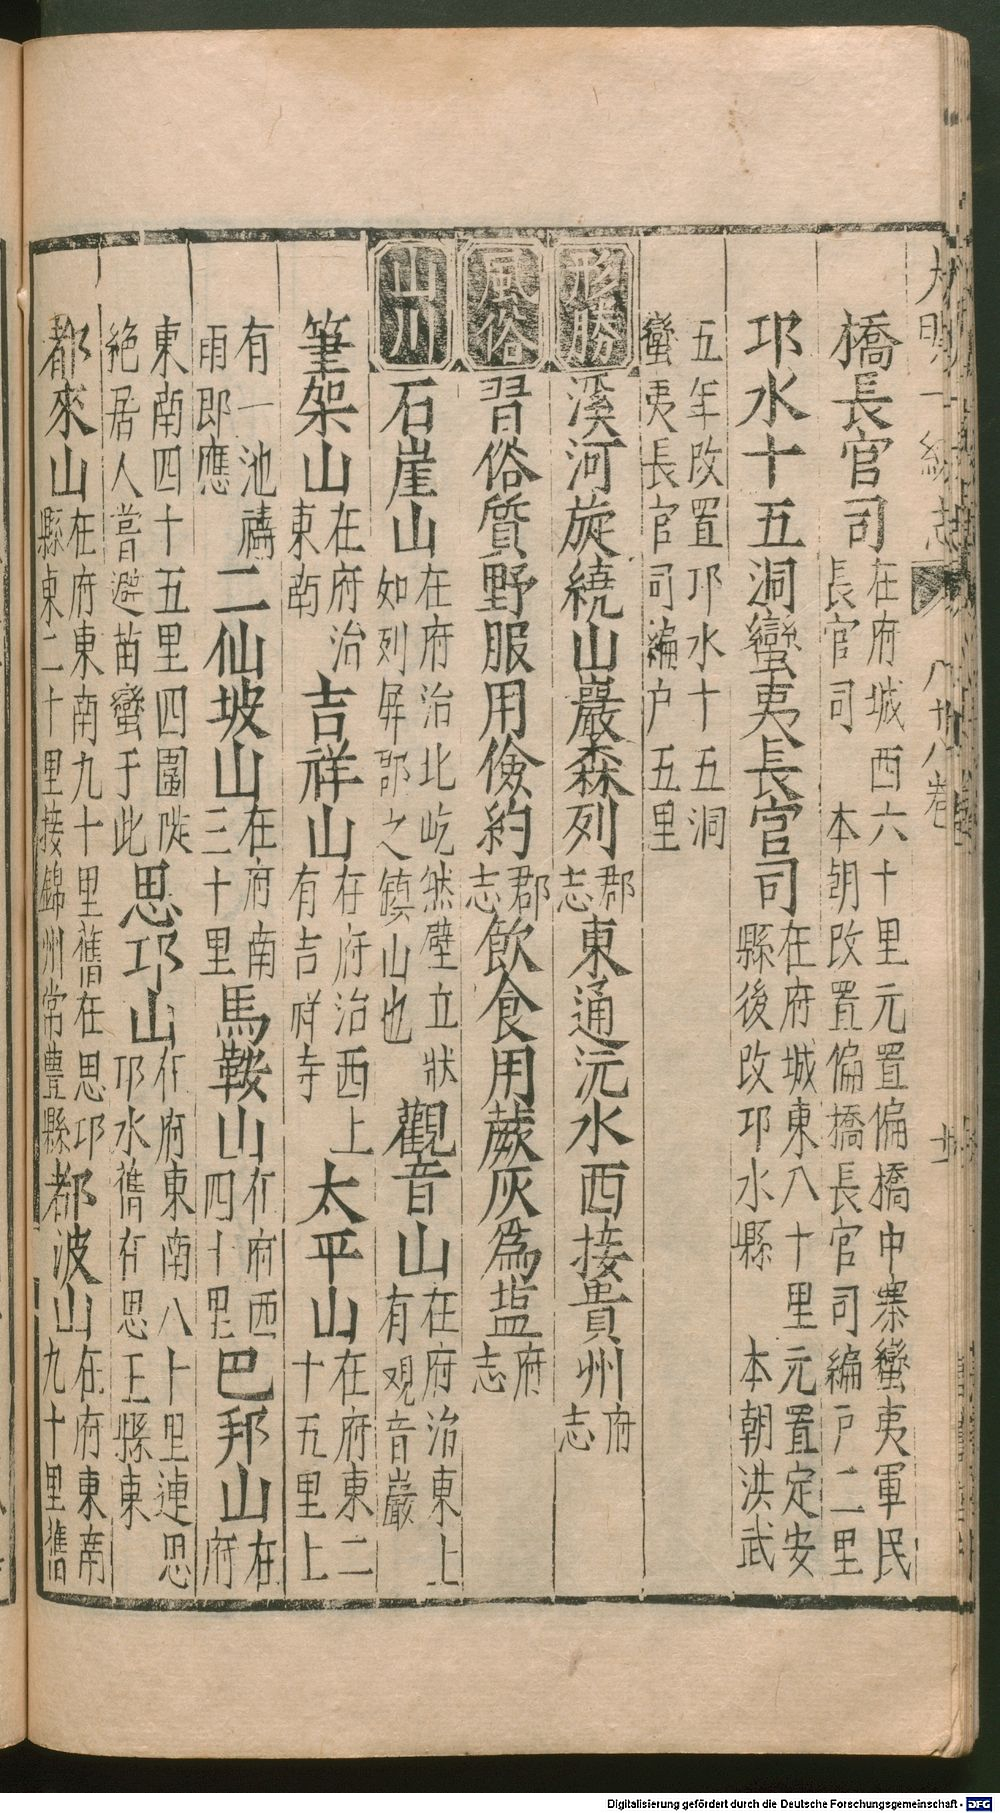 大明一統志 八十八卷 廿
橋長官司 在府城西六十里元置偏橋中寨蠻夷軍民
長官司 本朝改置偏橋長官司編戶二里
邛水十五洞蠻夷長官司 在府城東八十里元置定安
縣後改邛水縣 本朝洪武
五年改置邛水十五洞
蠻夷長官司編户五里
形勝 溪河旋繞山巖森列 郡志 東通沅水西接貴州 府志
風俗 習俗質野服用儉約 郡志 飲食用蕨灰爲塩 府志
山川 石崖山 在府治北屹然壁立狀如列屏郡之鎮山也 觀音山 在府治東上有观音巖
筆架山 在府治東南 吉祥山 在府治西上有吉祥寺 太平山 在府東二十五里上
有一池禱雨即應 二仙坡山 在府南三十里 馬鞍山 在府西四十里 巴邦山 在府
東南四十五里四圍陡絶居人嘗避苗蠻于此 思邛山 在府東南八十里連思邛水舊有思王縣東
都來山 在府東南九十里舊在思邛縣東二十里接錦州常豊縣 都波山 在府東南九十里舊
Digitalisierung gefördert durch die Deutsche Forschungsgemeinschaft - DFG